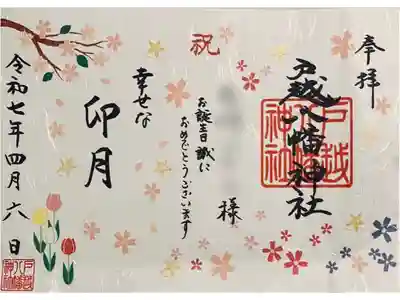 奉拝
戸越八幡神社
戸越八幡神社
祝
様
お誕生日誠に
おめでとうございます
幸せな
卯月
令和七年四月六日
戸越八幡神社